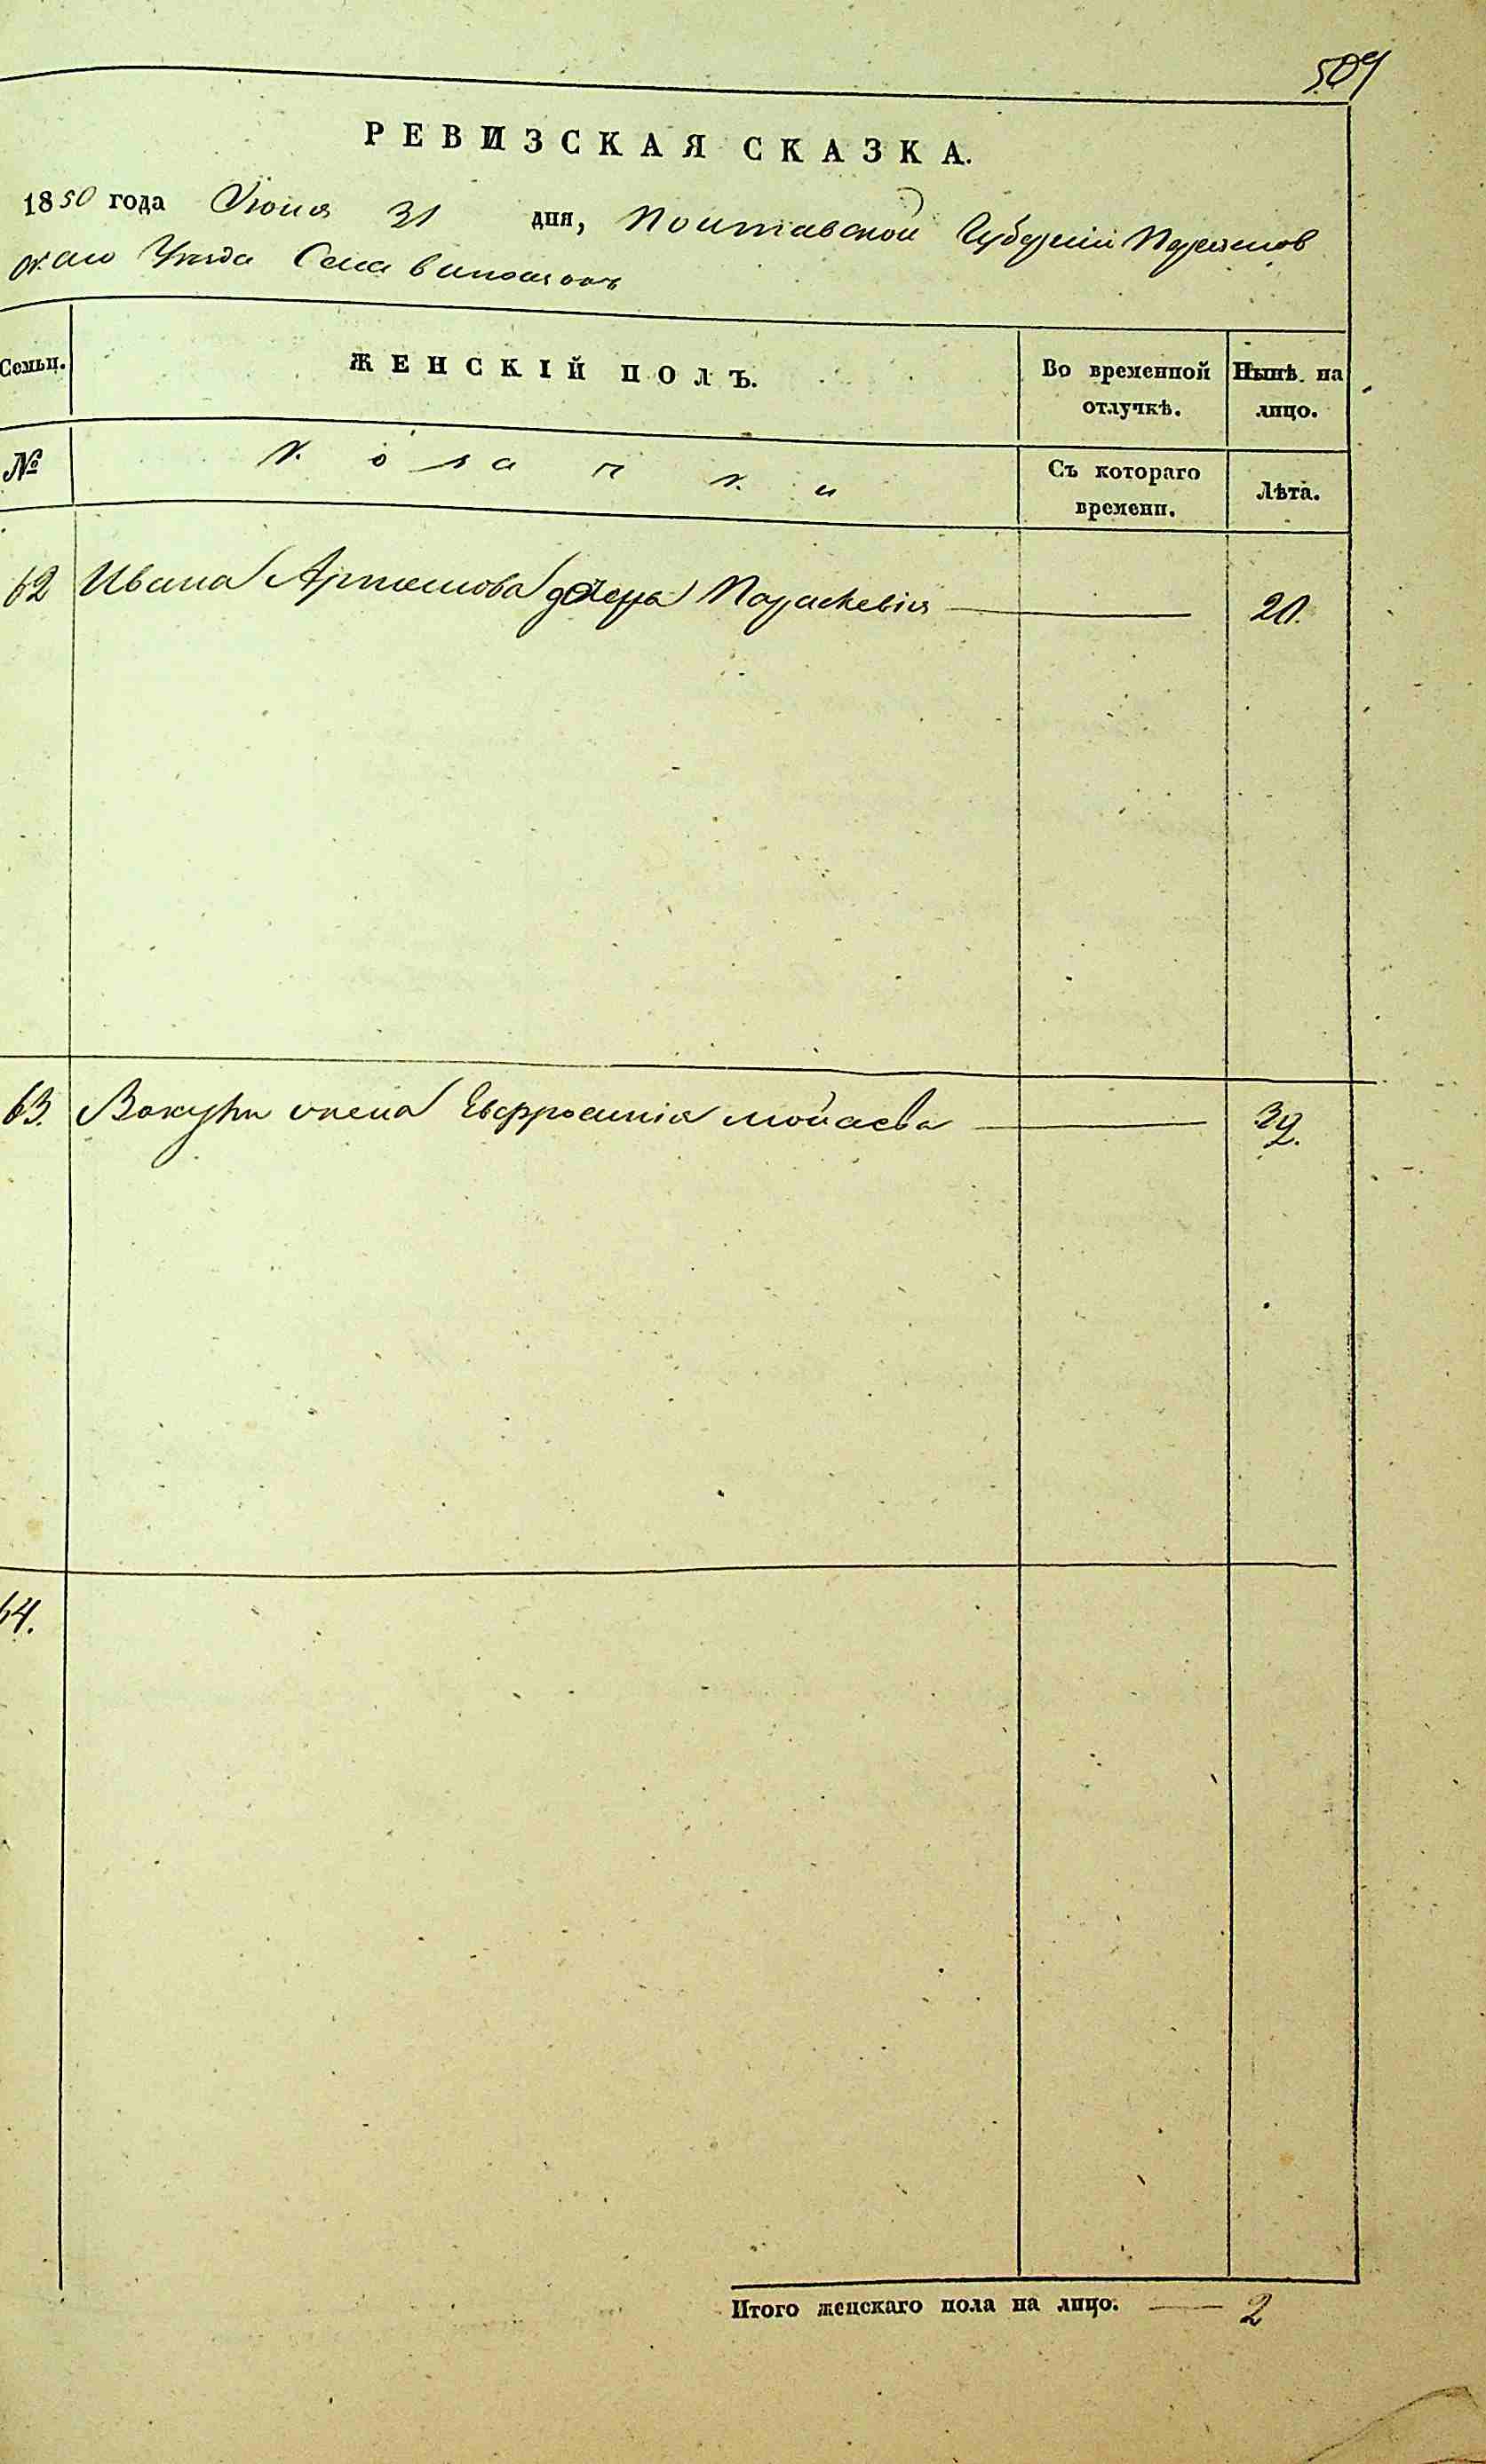 509
РЕВИЗСКАЯ СКАЗКА.
1850 года Июня 31 дня, Полтавской Губерніи Переяслов
скаго Уезда Села
Семьи. ЖЕНСКІЙ ПОЛЪ. Во временной отлучкѣ. Нынѣ на лицо.
№ Козачки Съ котораго времени. Лѣта.
62 Ивана Артемова дочерь Параскевія — 20.
63. Вакулы жена Евфросинія Мойсеева — 32.
64.
Итого женскаго пола на лицо. — 2